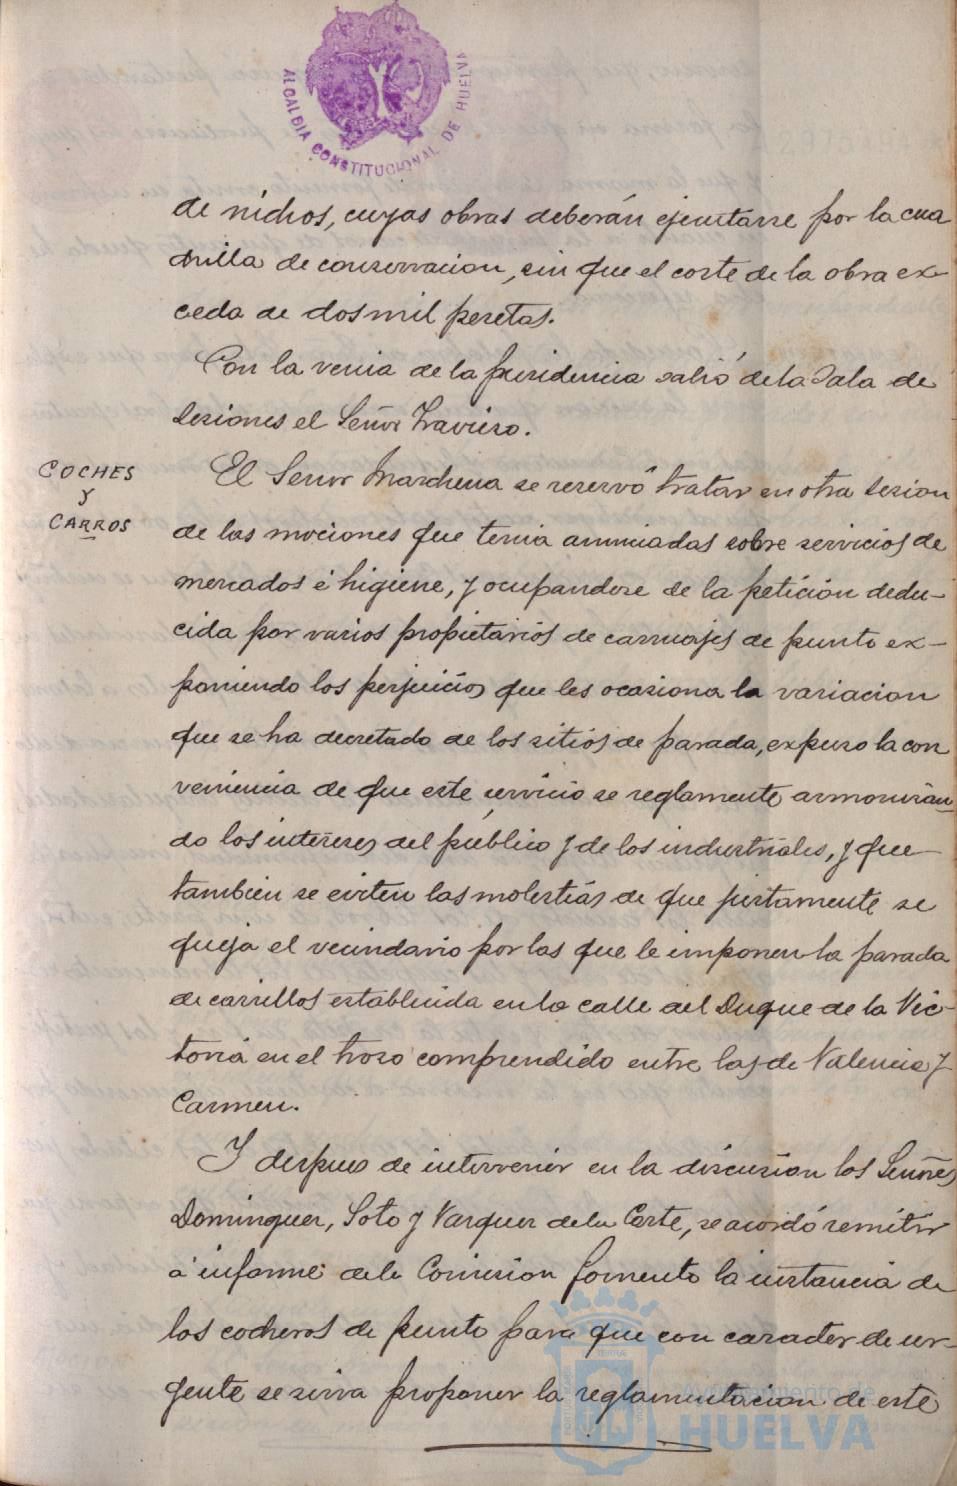 ALCALDIA CONSTITUCIONAL DE HUELVA
de nichos, cuyas obras deberán ejecutarse por la cua
drilla de conservacion, sin que el coste de la obra ex-
ceda de dos mil pesetas.
Con la venia de la presidencia salió de la Sala de
Sesiones el Señor Travieso.
COCHES
Y
CARROS
El Señor Marchena se reservó tratar en otra sesion
de las mociones que tenia anunciadas sobre servicios de
mercados é higiene, y ocupandose de la petición dedu-
cida por varios propietarios de carruajes de punto ex-
poniendo los perjuicios que les ocasiona la variacion
que se ha decretado de los sitios de parada, expuso la con
veniencia de que este servicio se reglamente armonizan-
do los intereses del público y de los industriales, y que
tambien se eviten las molestias de que justamente se
queja el vecindario por las que le imponen la parada
de carrillos establecida en la calle del Duque de la Vic-
toria en el trozo comprendido entre las de Valencia y
Carmen.
Y despues de intervenir en la discusion los Señores
Dominguez, Soto y Vazquez de la Corte, se acordó remitir
a informe de la Comision fomento la instancia de
los cocheros de punto para que con caracter de ur-
gente se sirva proponer la reglamentacion de este
Ayuntamiento de
HUELVA